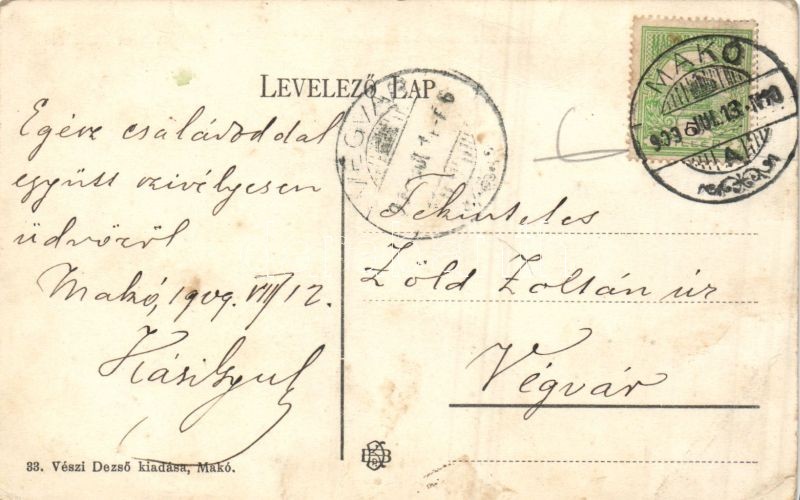 LEVELEZŐ LAP
Egész családoddal
együtt szivélyesen
üdvözöl
Makó, 1909. VII/12.
VÉGVÁR
MAKÓ
909 JUL. 13.
A
Tekintetes
Zöld Zoltán úr
Végvár
33. Vészi Dezső kiadása, Makó.